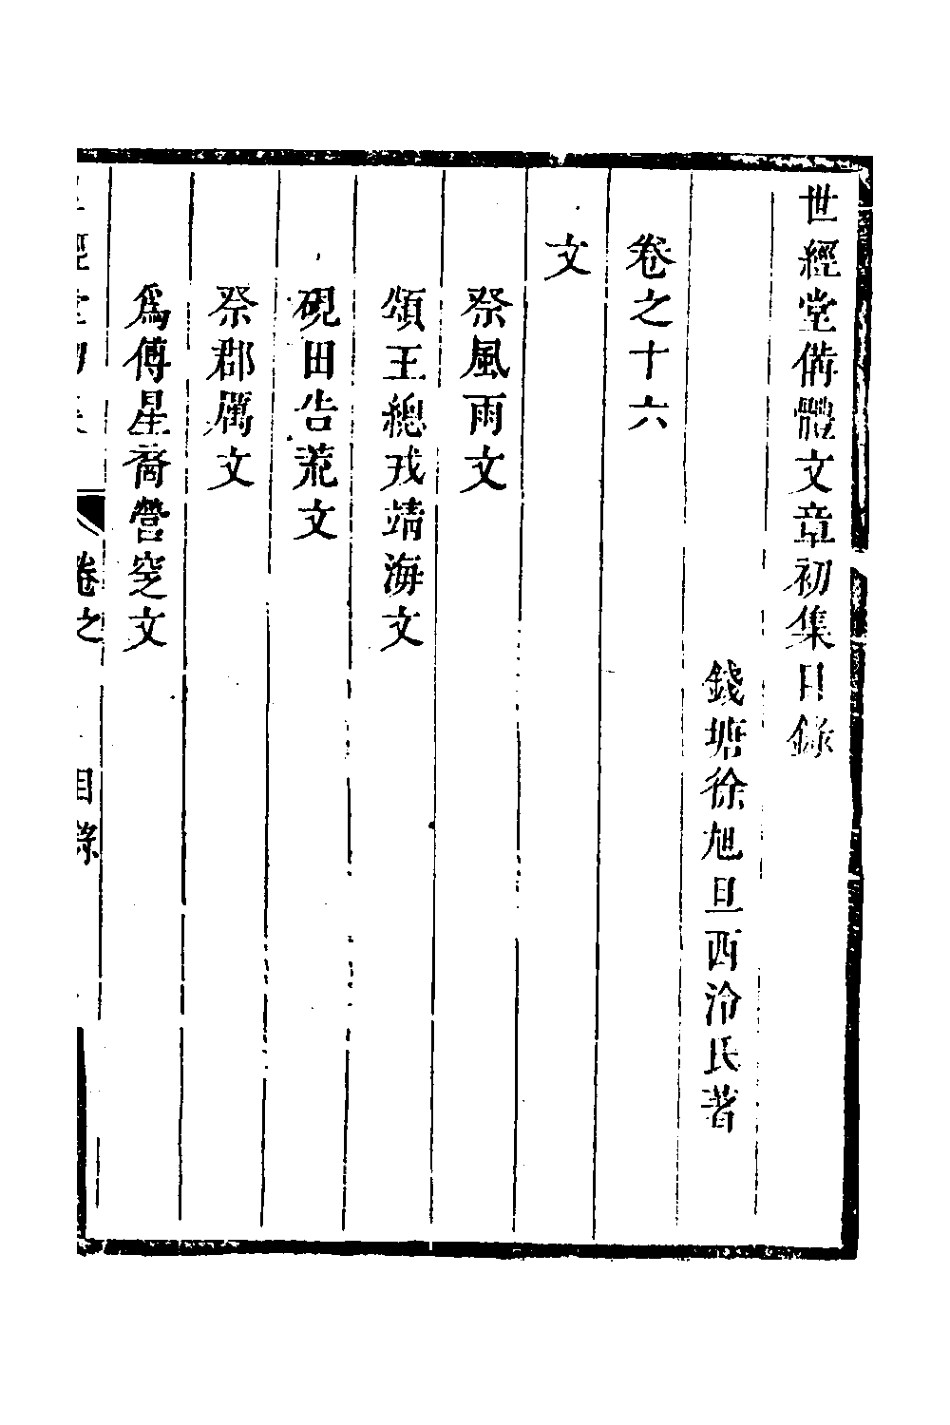 世經堂俻體文章初集目錄
錢塘徐旭旦西泠氏著
卷之十六
文
祭風雨文
頌王總戎靖海文
硯田告荒文
祭郡厲文
爲傅星裔營窆文
卷之
目錄